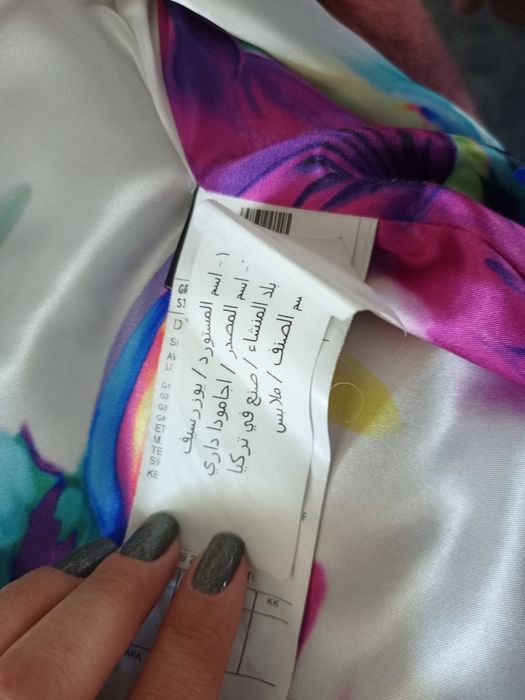 ١- اسم المستورد / يوزرسيف
- اسم المصدر / اجامودا داري
بلد المنشاء / صنع في تركيا
سم الصنف / ملابس
GR
ST
D
SI
AV
LT
G1
G2
G3
G4
ET
M
TE
SØ
KE
KK
AKA